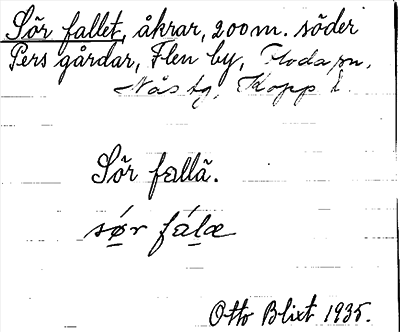 Sör fallet, åkrar, 200 m. söder
Pers gårdar, Flen by, Floda sn,
Näs tg, Kopp l.
Sör fallä.
sør fálæ
Otto Blixt 1935.